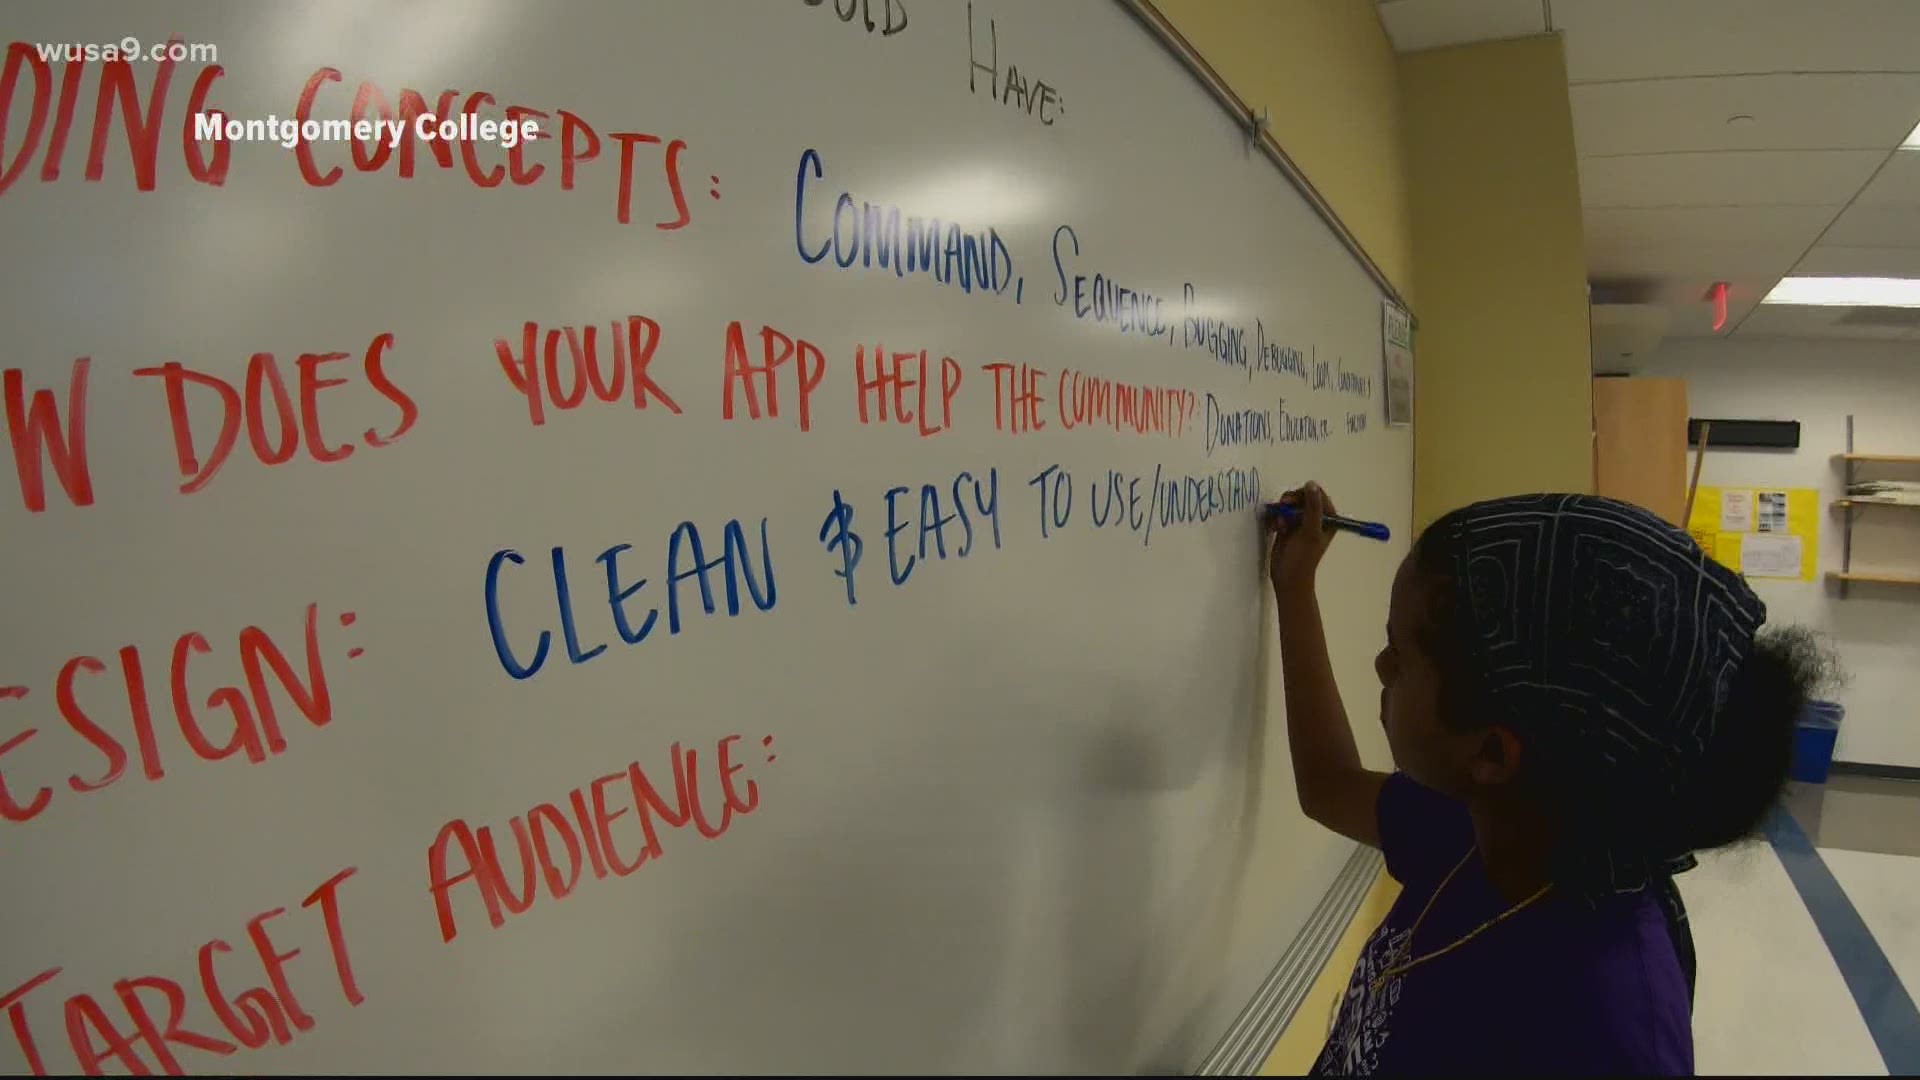 wusa9.com
Montgomery College
HAVE:
DING CONCEPTS: COMMAND, SEQUENCE, BUGGING, DEBUGGING, LOOP,
W DOES YOUR APP HELP THE COMMUNITY? DONATIONS, EDUCATION,
ESIGN: CLEAN & EASY TO USE/UNDERSTAND
TARGET AUDIENCE: